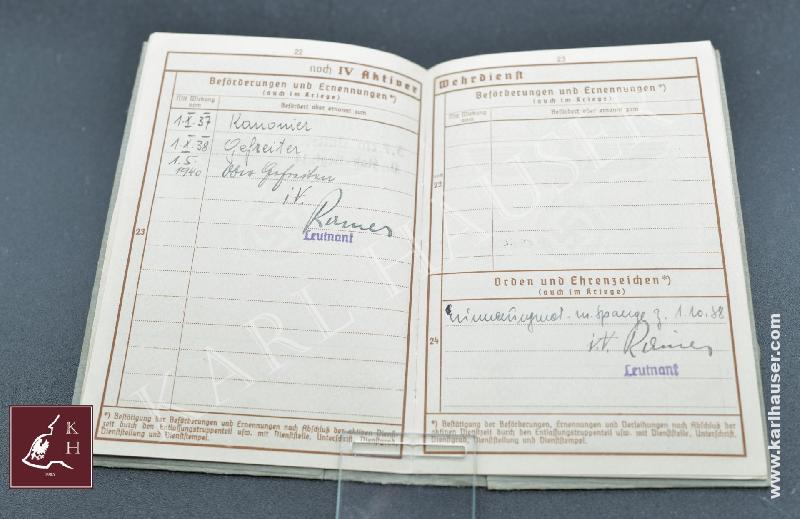 22
noch IV Aktiver
Beförderungen und Ernennungen*)
(auch im Kriege)
Mit Wirkung vom
Befördert oder ernannt zum
1.X.37 Kanonier
1.X.38 Gefreiter
1.5.1940 Ober Gefreiten
i.V.
Leutnant
23
*) Bestätigung der Beförderungen und Ernennungen nach Abschluß der aktiven Dienst-
zeit durch den Entlassungstruppenteil usw. mit Dienststelle, Unterschrift, Dienstgrad,
Dienststellung und Dienststempel.
23
Wehrdienst
Beförderungen und Ernennungen*)
(auch im Kriege)
Mit Wirkung vom
Befördert oder ernannt zum
noch
23
Orden und Ehrenzeichen*)
(auch im Kriege)
m. Spange z. 1.10.38
24
i.V.
Leutnant
*) Bestätigung der Beförderungen, Ernennungen und Verleihungen nach Abschluß der
aktiven Dienstzeit durch den Entlassungstruppenteil usw. mit Dienststelle, Unterschrift,
Dienstgrad, Dienststellung und Dienststempel.
KARL HAUSER
K
H
www.karlhauser.com